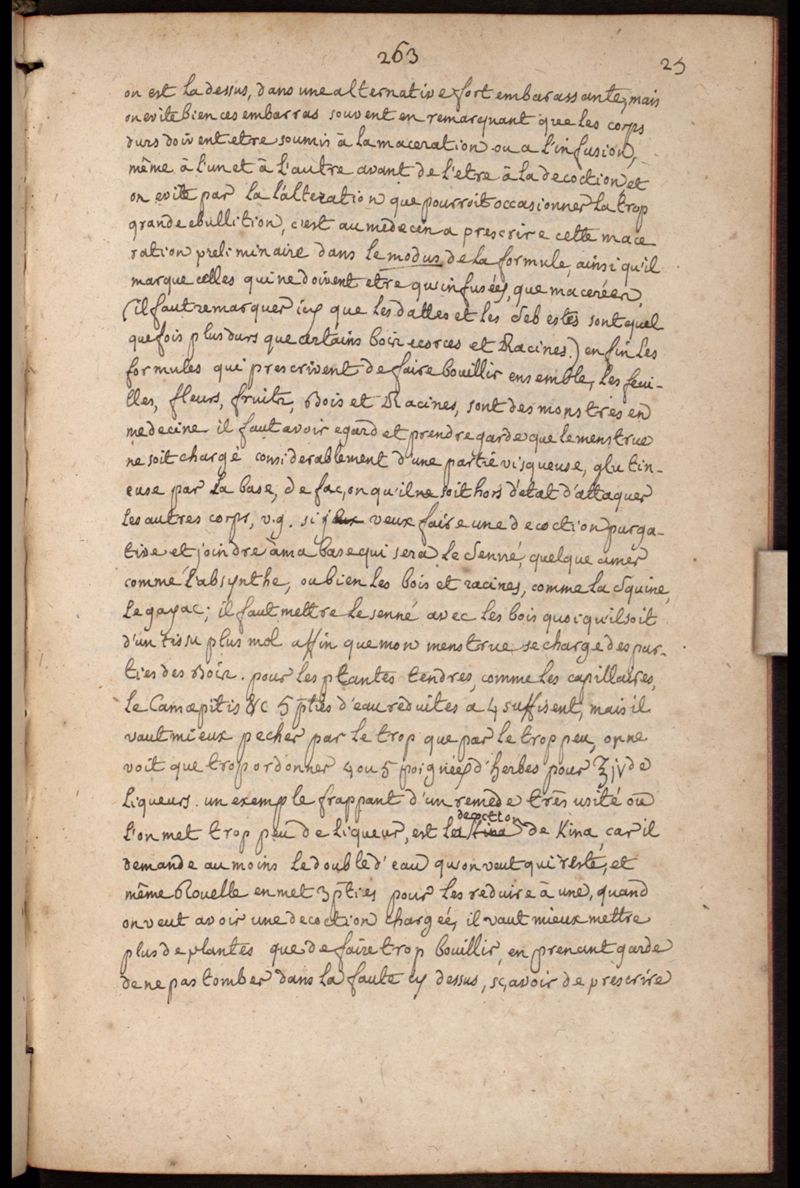 263
25
on est la dessus, dans une alternative fort embarassante, mais
on evite bien ces embarras souvent en remarquant que les corps
durs doivent etre soumis à la maceration ou a l'infusion,
même à l'un et à l'autre avant de l'etre à la decoction et
on evite par la l'alteration que pourroit occasionner la trop
grande ebullition, c'est au médecin a prescrire cette mace
ration preliminaire dans le modus de la formule, ainsi qu'il
marque celles qui ne doivent etre qu'infusées, que macerées,
(il faut remarquer icy que les dattes et les sebestes sont quel
quefois plus durs que certains bois ecorces et Racines.) enfin les
formules qui prescrivent de faire bouillir ensemble, les feui-
lles, fleurs, fruits, Bois et Racines, sont des monstres en
medecine il faut avoir egard et prendre garde que le menstrue
ne soit chargé considerablement d'une partie visqueuse, glutin-
euse par la base, de façon qu'il ne soit hors d'etat d'attaquer
les autres corps, v.g. si je veux faire une decoction purga-
tive et joindre à ma base qui sera le Senné, quelque amer
comme l'absynthe, ou bien les bois et racines, comme la Squine,
le gayac; il faut mettre le senné avec les bois quoiqu'il soit
d'un tissu plus mol affin que mon menstrue se charge des par-
ties des bois. pour les plantes tendres, comme les capillaires,
le Camœpitis &c 5 pties d'eau reduites a 4 suffisent, mais il
vaut mieux pecher par le trop que par le trop peu, on ne
voit que trop ordonner 4 ou 5 poignées d'herbes pour ℥ jv de
liqueurs. un exemple frappant d'un remède très usité où
l'on met trop peu de liqueur, est la decoction de Kina, car il
demande au moins le double d'eau qu'on veut qui reste, et
même Rouelle en met 3 pties pour les reduire à une, quand
on veut avoir une decoction chargée, il vaut mieux mettre
plus de plantes que de faire trop bouillir, en prenant garde
de ne pas tomber dans la faute cy dessus, sçavoir de prescrire